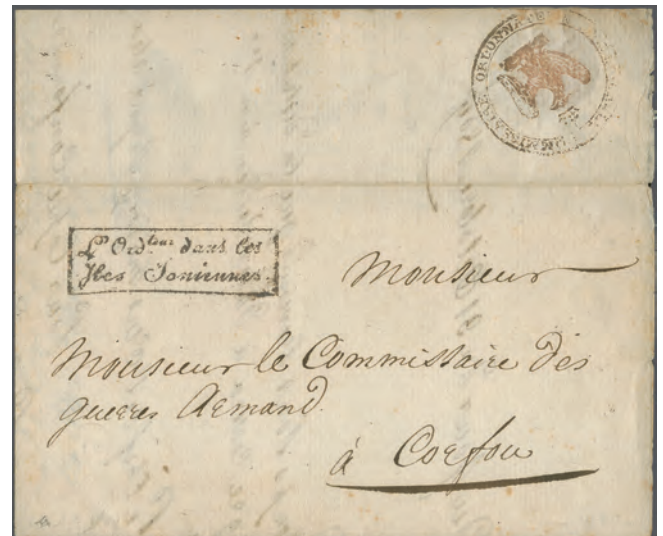 COMMISSAIRE ORDONNATEUR
L'Ord.teur dans les
Iles Ioniennes.
Monsieur
Monsieur le Commissaire des
guerres Armand.
à Corfou